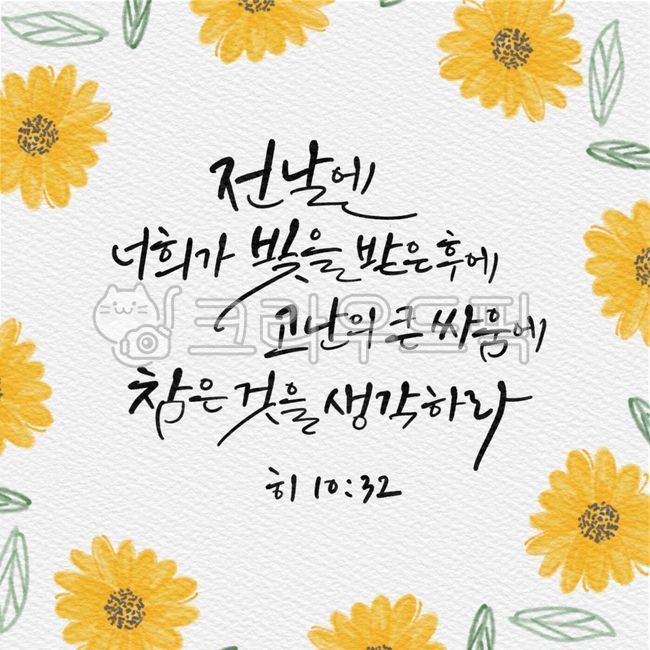 전날에
너희가 빛을 받은 후에
고난의 큰 싸움에
참은 것을 생각하라
히 10:32
크라우드픽